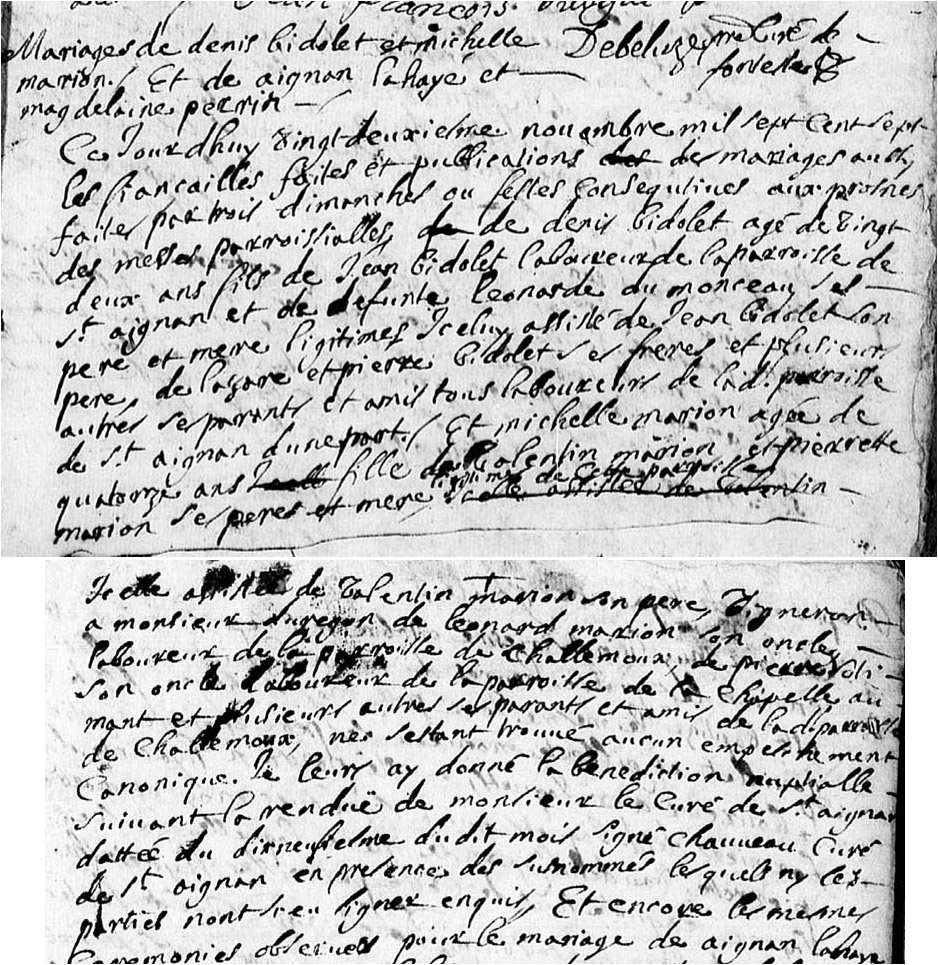 Mariages de denis bidolet et michelle Debeluze pre Curé de
marion / Et de aignan lahaye et fontette
magdelaine perrin
Ce Jourdhuy vingtdeuxiesme nouambre mil sept Cent sept
les fiancailles faites et publications des des mariages
faites par trois dimanches ou festes Consequtives aux prosnes
des messes parroissialles de de denis bidolet agé de vingt
deux ans fils de Jean bidolet laboureur de la parroisse de
st aignan et de defunte leonarde du monceau ses
pere et mere ligitimes Iceluy assisté de Jean bidolet son
pere, de lazare et pierre bidolet ses freres et plusieurs
autres ses parants et amis tous laboureurs de lad. parroisse
de st aignan dune part. / Et michelle marion agée de
quatorze ans fille de valentin marion et pierrette
ligitimes de Cette parroisse
marion ses peres et mere Icelle assistée de valentin
Icelle assistée de valentin marion son pere, vigneron
a monsieur de leonard marion son oncle
laboureur de la parroisse de Challemoux, de pierre
son oncle laboureur de la parroisse de la Chapelle au
mant et plusieurs autres ses parants et amis de lad. parroisse
de Challemoux, nes sestant trouvé aucun empeschement
Canonique. Je leurs ay donné la benediction nuptialle
suivant la renduë de monsieur le Curé de st aignan
dattée du dixneufiesme dudit mois signé chauveau Curé
de st aignan en presence des susnommés lesquels ny les
parties nont sceu signer enquis, Et encore les mesmes
Ceremonies observées pour le mariage de aignan lahaye